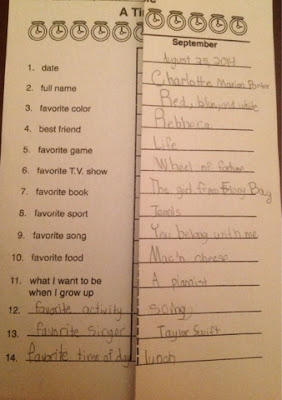 A Ti
September
1. date August 25, 2014
2. full name Charlotte Marian
3. favorite color Red, blue, and white
4. best friend Rebbeca
5. favorite game Life
6. favorite T.V. show Wheel of fortune
7. favorite book The girl from Bay
8. favorite sport Tennis
9. favorite song You belong with me
10. favorite food Mac'n cheese
11. what I want to be A pianist
when I grow up
12. favorite activity
13. favorite singer Taylor Swift
14. favorite time of day lunch